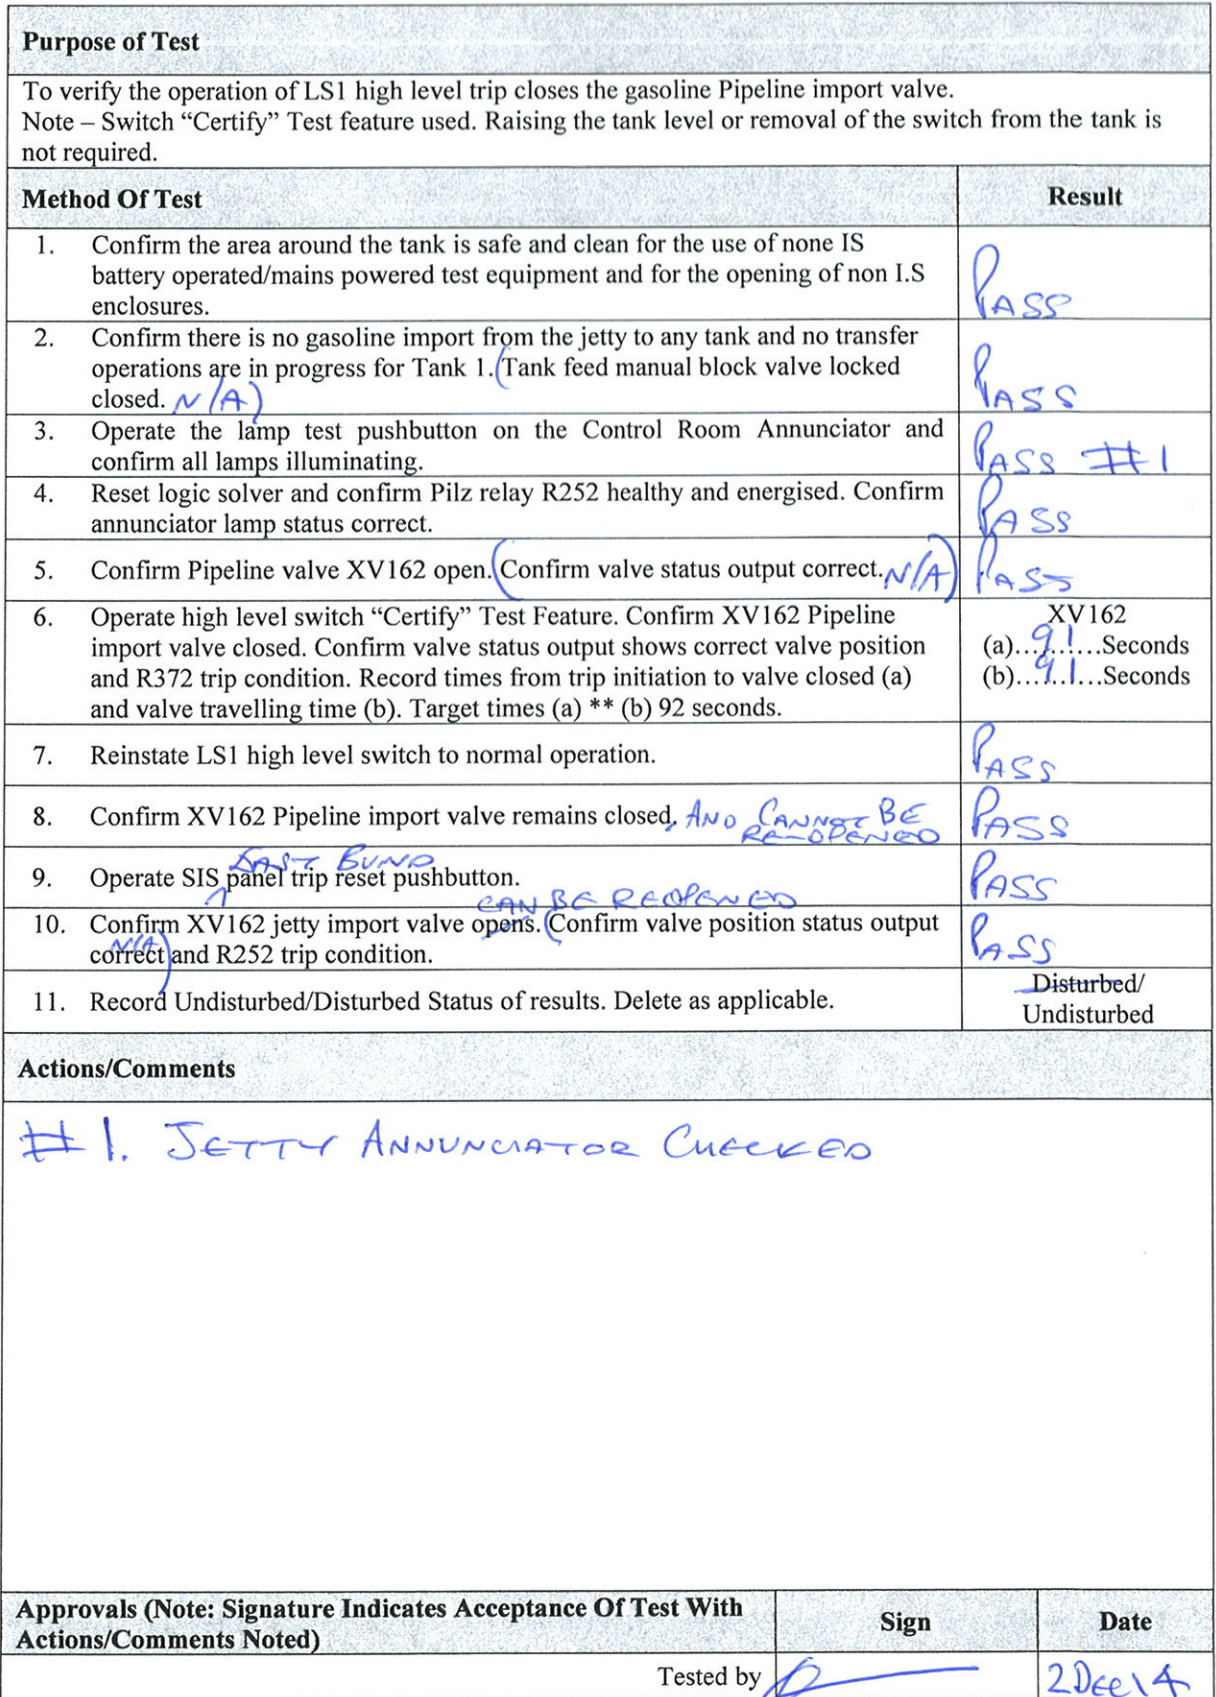 Purpose of Test
To verify the operation of LS1 high level trip closes the gasoline Pipeline import valve.
Note – Switch “Certify” Test feature used. Raising the tank level or removal of the switch from the tank is
not required.
Method Of Test Result
1. Confirm the area around the tank is safe and clean for the use of none IS
battery operated/mains powered test equipment and for the opening of non I.S
enclosures.
PASS
2. Confirm there is no gasoline import from the jetty to any tank and no transfer
operations are in progress for Tank 1. (Tank feed manual block valve locked
closed. N/A)
PASS
3. Operate the lamp test pushbutton on the Control Room Annunciator and
confirm all lamps illuminating.
PASS #1
4. Reset logic solver and confirm Pilz relay R252 healthy and energised. Confirm
annunciator lamp status correct.
PASS
5. Confirm Pipeline valve XV162 open. (Confirm valve status output correct. N/A)
PASS
6. Operate high level switch “Certify” Test Feature. Confirm XV162 Pipeline
import valve closed. Confirm valve status output shows correct valve position
and R372 trip condition. Record times from trip initiation to valve closed (a)
and valve travelling time (b). Target times (a) ** (b) 92 seconds.
XV162
(a)...91...Seconds
(b)...91...Seconds
7. Reinstate LS1 high level switch to normal operation.
PASS
8. Confirm XV162 Pipeline import valve remains closed, AND CANNOT BE
RE-OPENED
PASS
EAST BUND
9. Operate SIS panel trip reset pushbutton.
PASS
CAN BE REOPENED
10. Confirm XV162 jetty import valve opens. (Confirm valve position status output
correct N/A) and R252 trip condition.
PASS
11. Record Undisturbed/Disturbed Status of results. Delete as applicable.
Disturbed/
Undisturbed
Actions/Comments
#1. JETTY ANNUNCIATOR CHECKED
Approvals (Note: Signature Indicates Acceptance Of Test With
Actions/Comments Noted)
Sign Date
Tested by 2 Dec 14